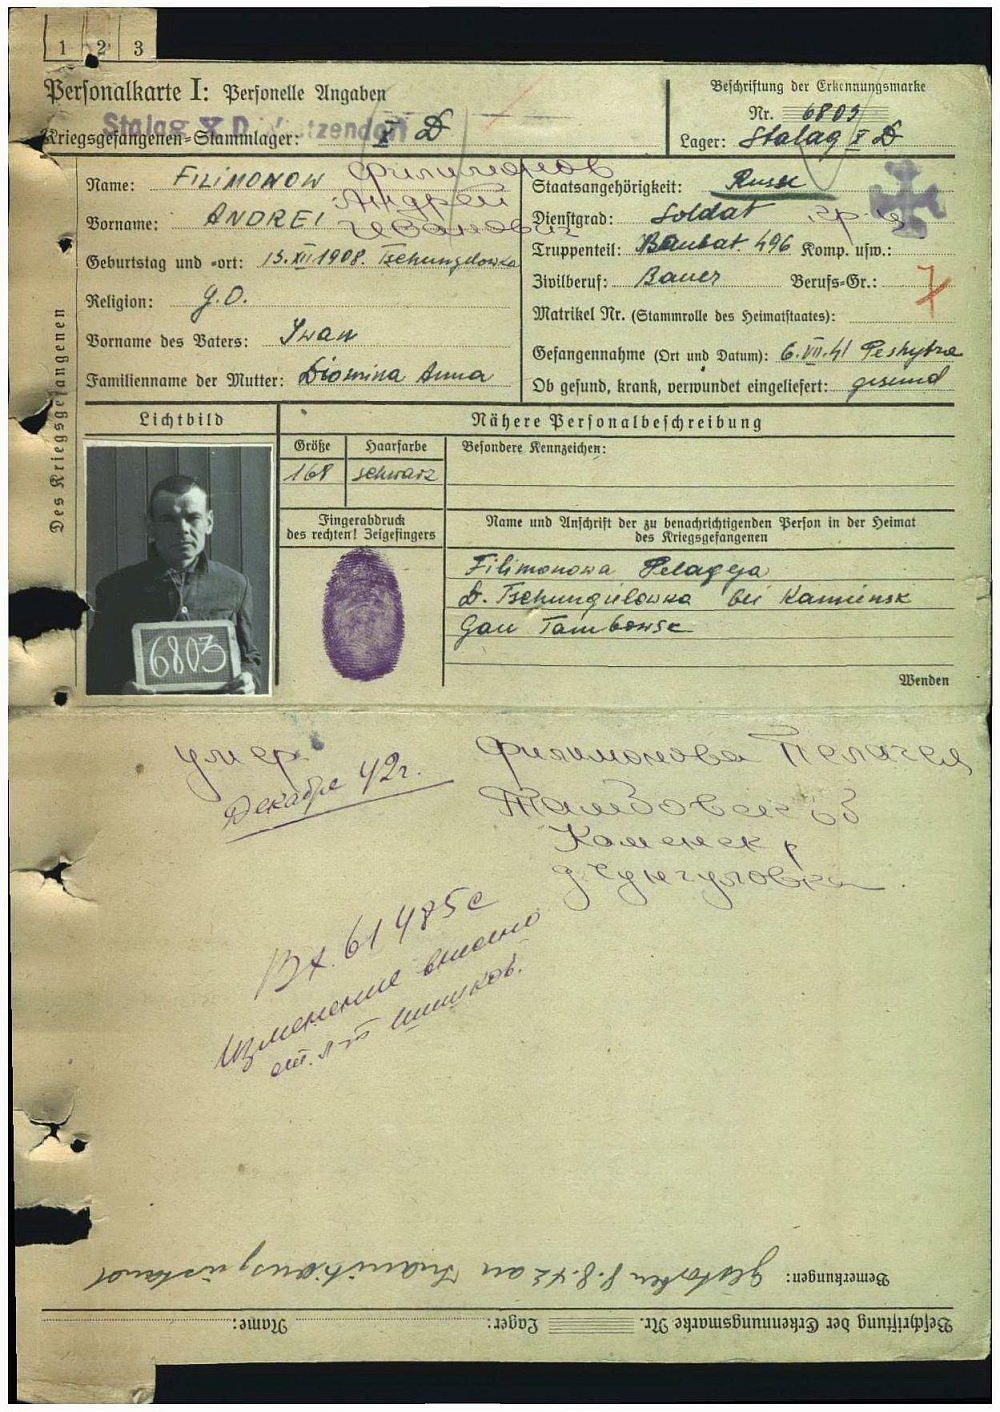 1 2 3
Personalkarte I: Personelle Angaben
Kriegsgefangenen-Stammlager: X D
Beschriftung der Erkennungsmarke
Nr. 6803
Lager: Stalag X D
Des Kriegsgefangenen
Name: FILIMONOW Филимонов
Vorname: ANDREI Андрей
Иванович
Geburtstag und -ort: 15.XII 1908. Tschungulowka
Religion: g.O.
Vorname des Vaters: Iwan
Familienname der Mutter: Diomina Anna
Staatsangehörigkeit: Russe
Dienstgrad: Soldat
Truppenteil: Baubat. 496 Komp. usw.:
Zivilberuf: Bauer Berufs-Gr.: 7
Matrikel Nr. (Stammrolle des Heimatstaates):
Gefangennahme (Ort und Datum): 6.VII.41
Ob gesund, krank, verwundet eingeliefert: gesund
Lichtbild
Nähere Personalbeschreibung
Größe Haarfarbe Besondere Kennzeichen:
168 schwarz
Fingerabdruck
des rechten! Zeigefingers
Name und Anschrift der zu benachrichtigenden Person in der Heimat
des Kriegsgefangenen
Filimonowa Pelageja
D. Tschungulowka bei Kamensk
Gau Tambowsk
6803
Wenden
умер
Декабре 42г.
Филимонова Пелагея
Тамбовск об
Каменск р
д Чунгуловка
Вх. 61485с
Изменение внесено
Шишков.
Bemerkungen: Gestorben 8.8.42 an Inanitionszustand
Beschriftung der Erkennungsmarke Nr. Lager: Name: